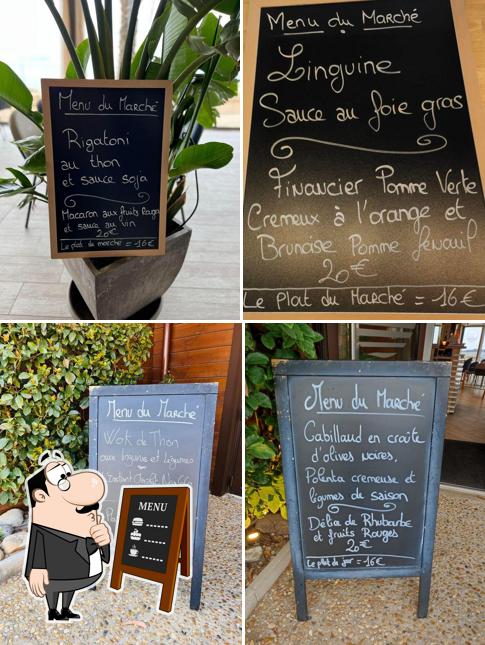 Menu du Marché
Rigatoni
au thon
et sauce soja
Macaron aux fruits Rouge
et sauce au vin
20€
Le plat du marché = 16€
Menu du Marché
Linguine
Sauce au foie gras
Financier Pomme Verte
Cremeux à l'orange et
Brunoise Pomme fenouil
20€
Le Plat du Marché = 16€
Menu du Marché
Wok de Thon
aux légumes
MENU
Menu du Marché
Cabillaud en croûte
d'olives noires,
Polenta cremeuse et
légumes de saison
Délice de Rhubarbe
et fruits Rouges
20€
Le plat du jour = 16€